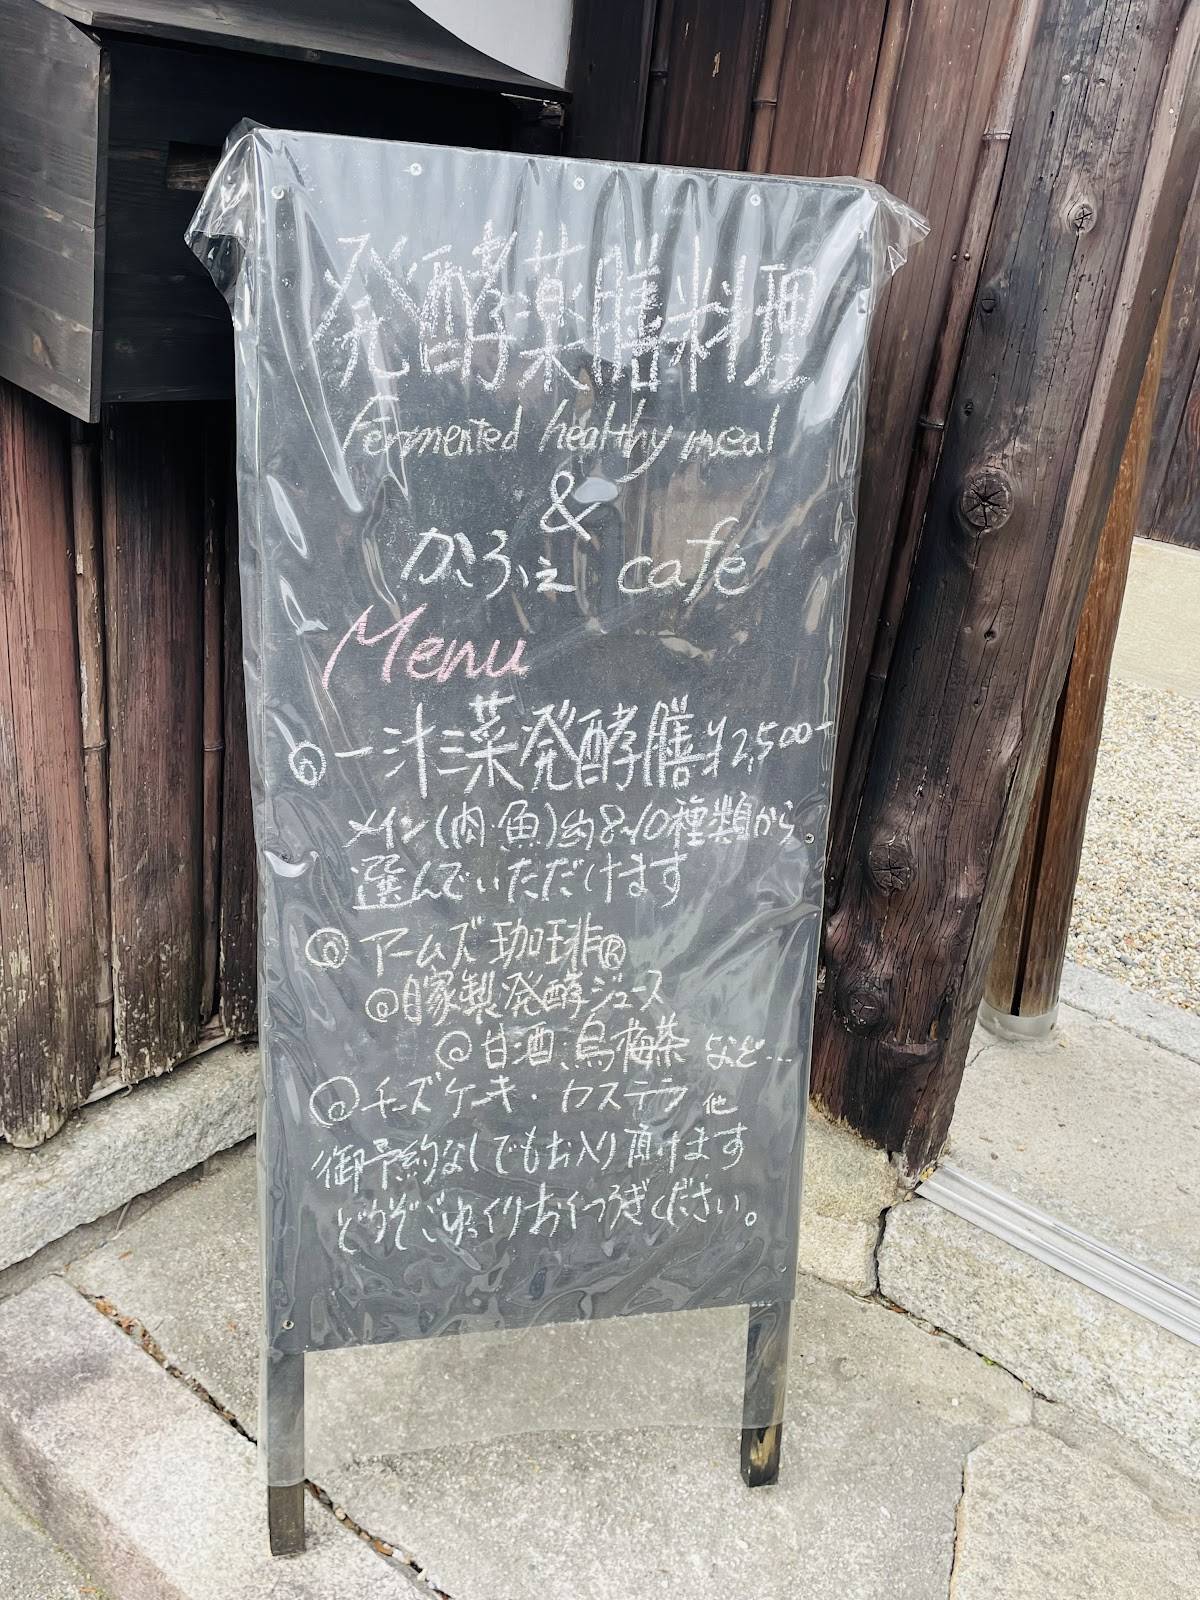 発酵薬膳料理
Fermented healthy meal
&
かふぇ café
Menu
◎一汁三菜発酵膳 ¥2,500ー
メイン(肉・魚)約8~10種類から
選んでいただけます
◎アームズ珈琲®
@自家製発酵ジュース
@甘酒、烏梅茶 など…
◎チーズケーキ・カステラ 他
御予約なしでもお入り頂けます
どうぞごゆっくりおくつろぎください。